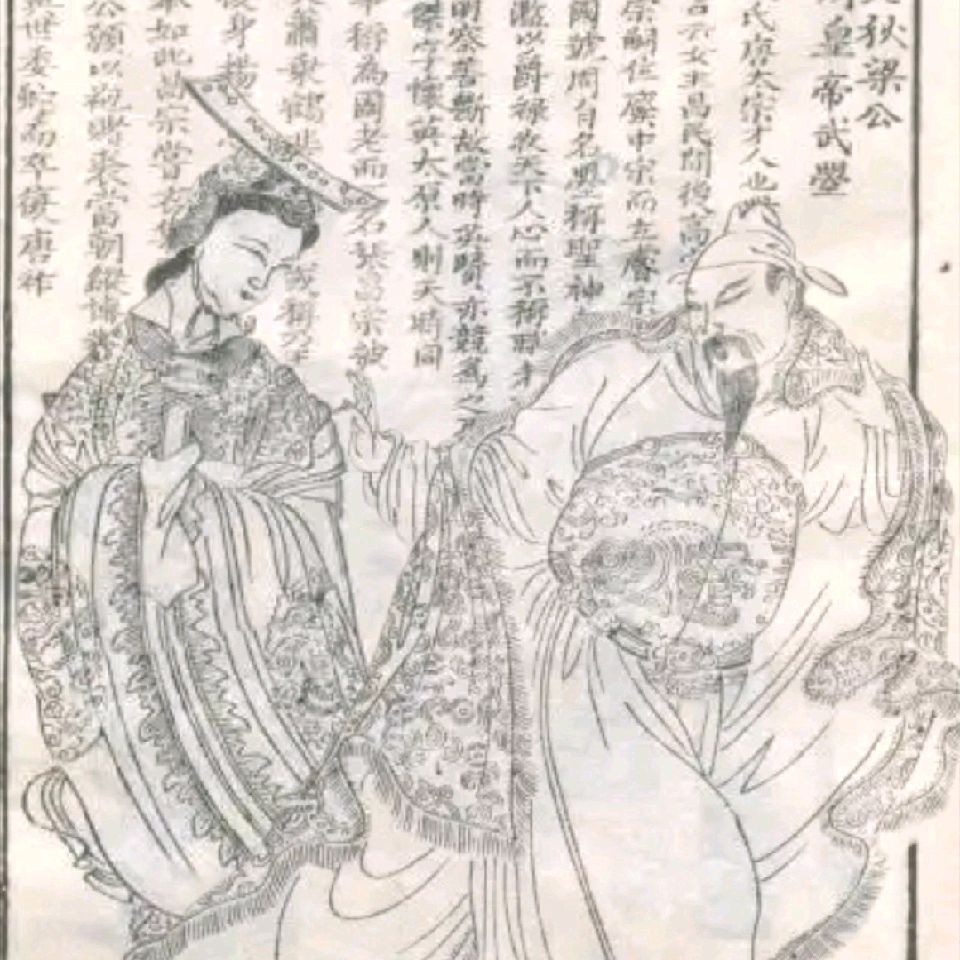 狄梁公
周皇帝武曌
氏唐太宗才人也
示女主昌民間後高
宗嗣位廢中宗而立睿宗
國號周自名曌稱聖神
濫以爵祿收天下人心而不稱
明察善斷故當時英賢亦競為之
傑字懷英太原人則天時同
平稱為國老而名張昌宗被
乘鶴
後身楊
如此昌宗嘗
公願以時裘當朝縱博
世委蛇而卒復唐祚